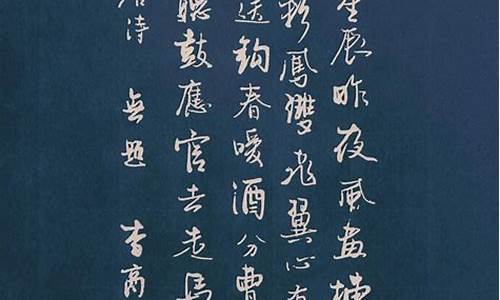 星辰昨夜風畫樓
彩鳳雙飛翼心有
送鈎春暖酒分曹
聽鼓應官去走馬
唐诗 無題 李商